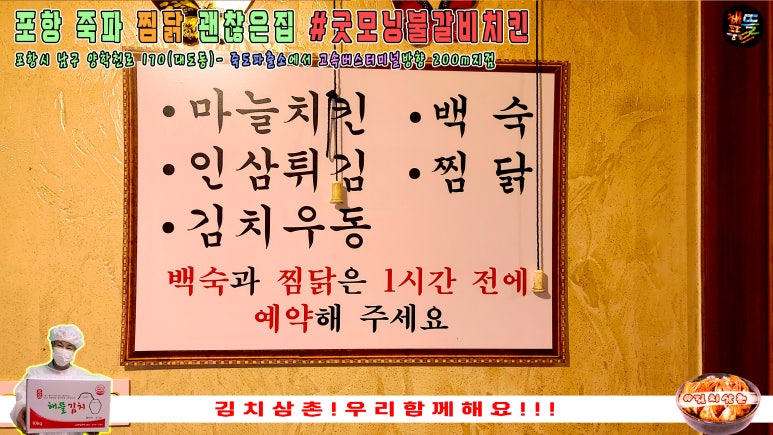 포항 죽파 찜닭 괜찮은집 #굿모닝불갈비치킨
포항시 남구 양학천로 170(대도동)- 죽도파출소에서 고속버스터미널방향 200m지점
• 마늘치킨 • 백 숙
• 인삼튀김 • 찜 닭
• 김치우동
백숙과 찜닭은 1시간 전에
예약해 주세요
해뜰김치
10kg
김치삼촌!우리함께해요!!!
#김치삼촌